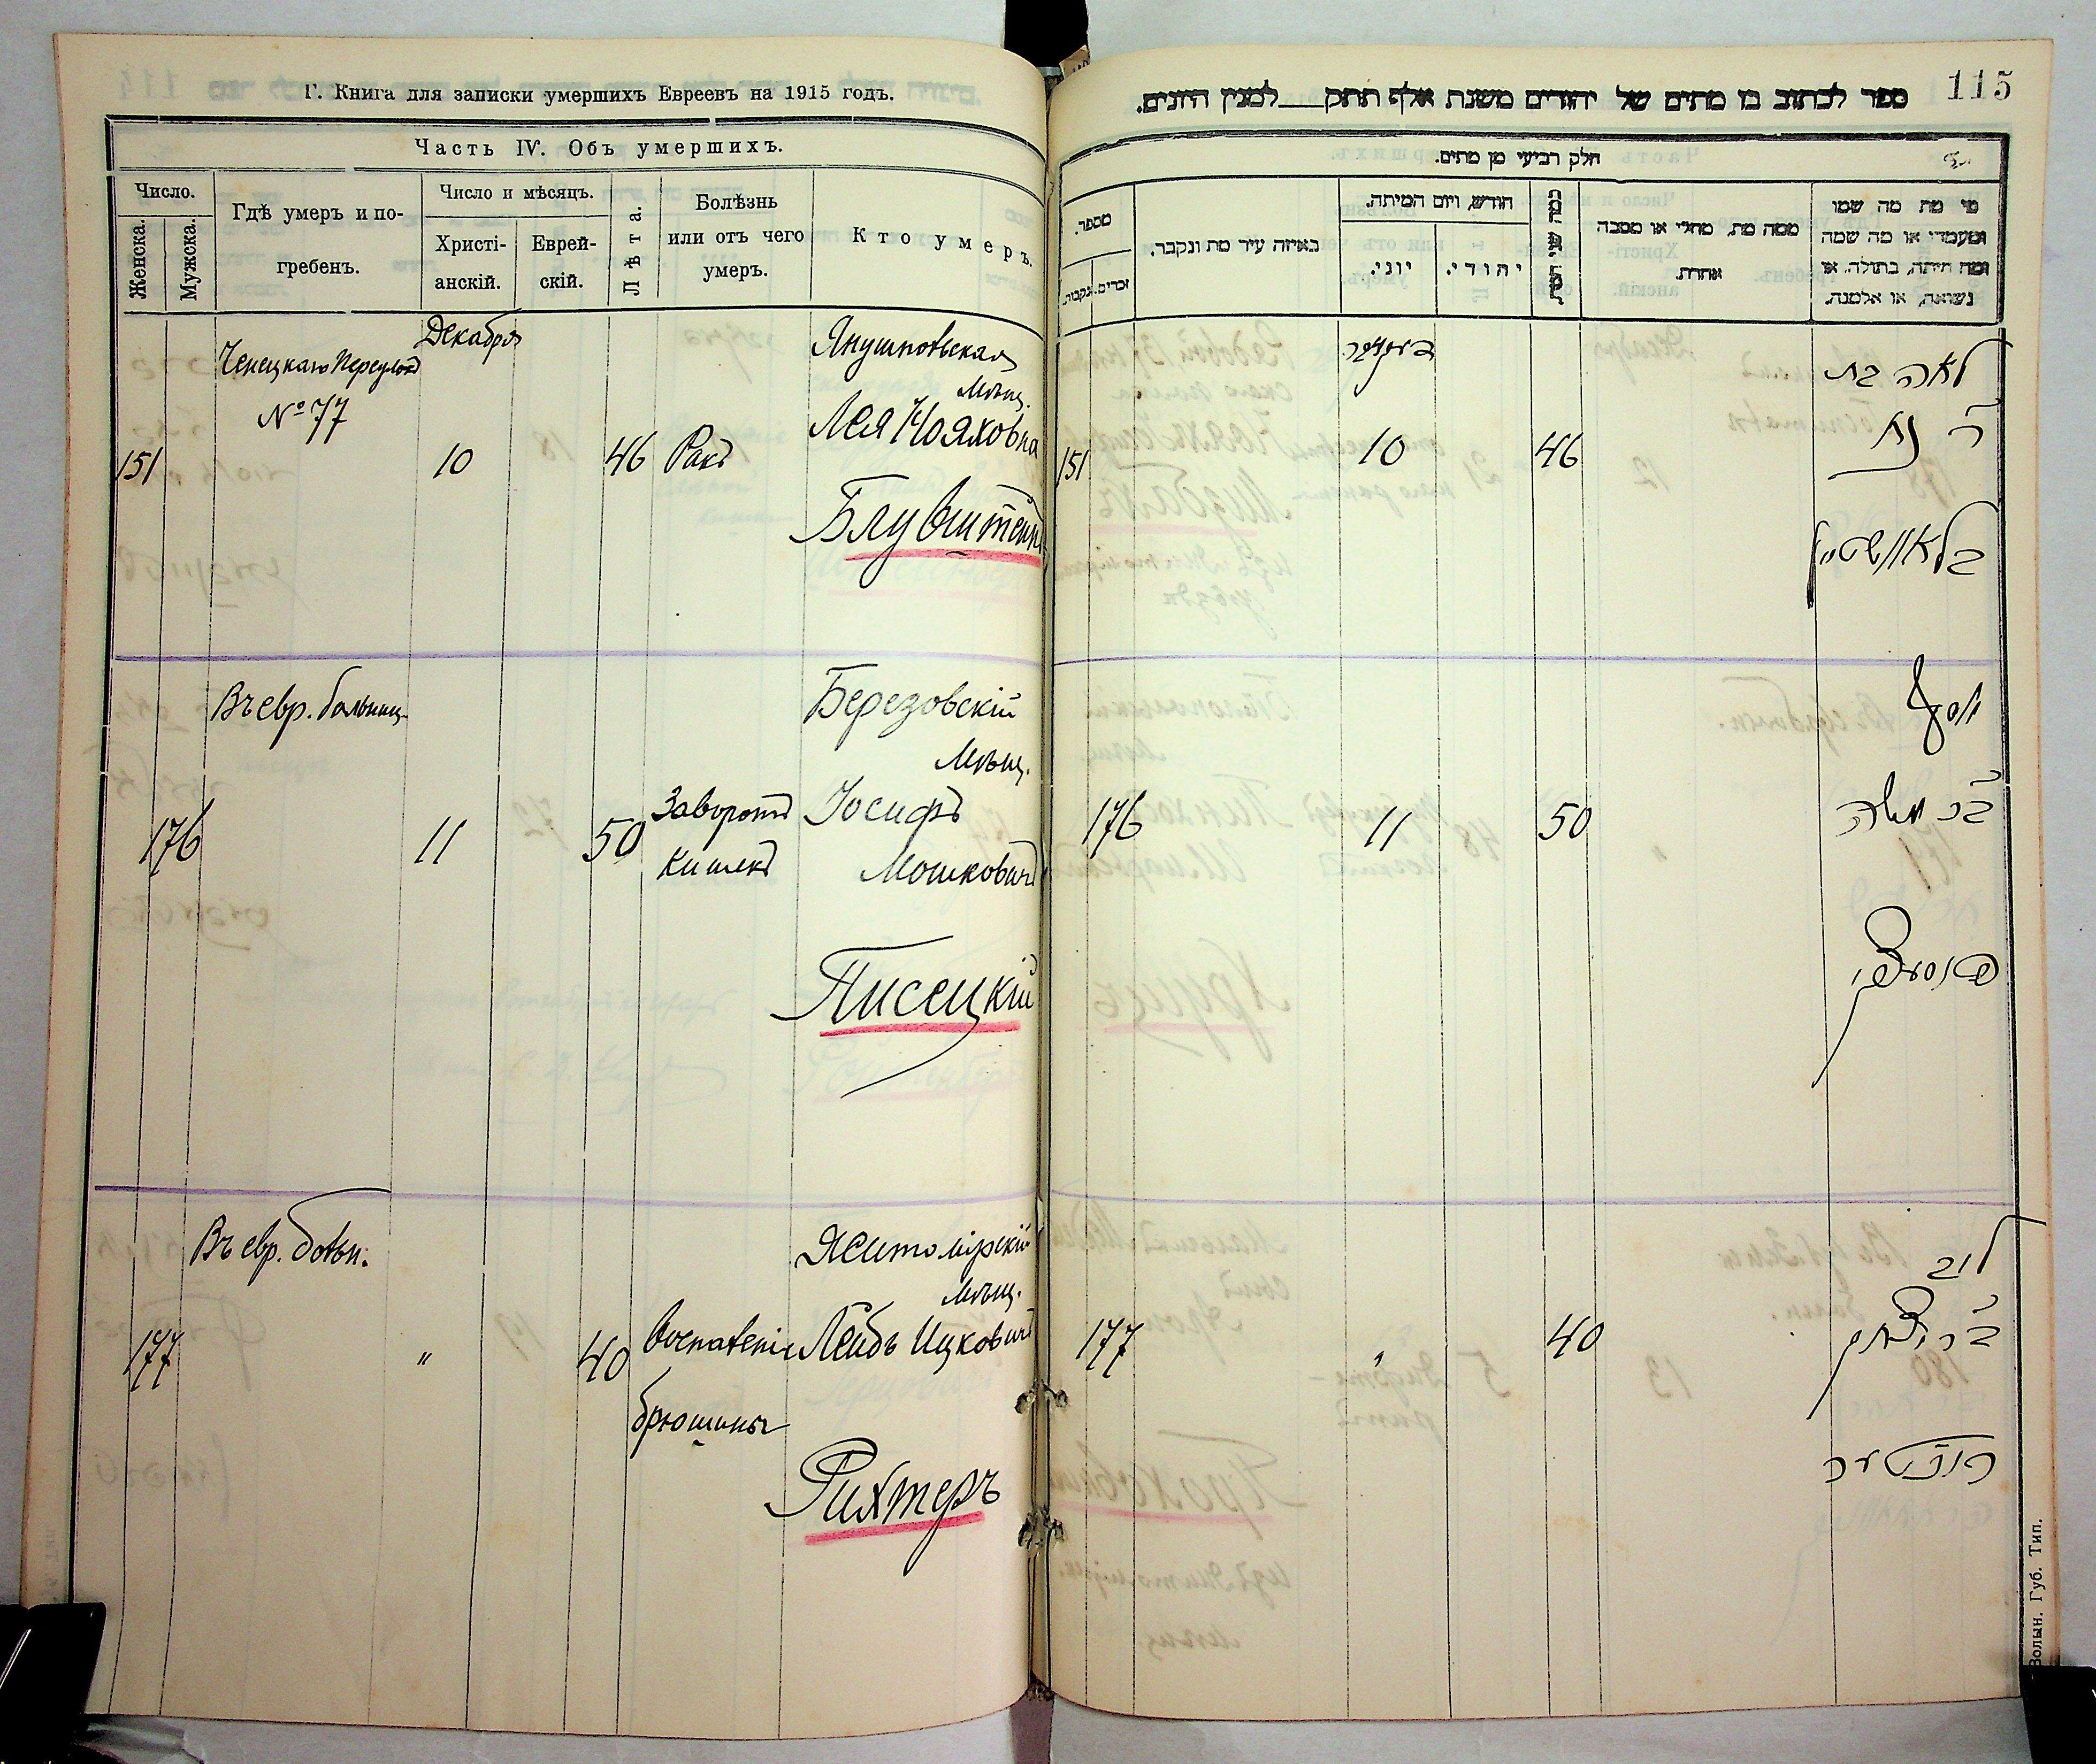 Г. Книга для записки умершихъ Евреевъ на 1915 годъ.
Часть IV. Объ умершихъ.
Число.
Женска.
Мужска.
Гдѣ умеръ и по-
гребенъ.
Число и мѣсяцъ.
Христі-
анскій.
Еврей-
скій.
Лѣта.
Болѣзнь
или отъ чего
умеръ.
Кто умеръ.
Декабря
Переулокъ
№ 77
151
10
46
Ракъ
Янушпольская
Мѣщ.
Лея Нояховна
Блувштейнъ
Въ евр. больниц.
176
11
50
Заворотъ
кишекъ
Березовскій
Мѣщ.
Іосифъ
Мошковичъ
Писецкій
Въ евр. больн.
177
"
40
Воспаленіе
брюшины
Житомірскій
мѣщ.
Лейбъ Ицковичъ
Рихтеръ
115
ספר לכתוב בו מתים של יהודים משנת אלף תתק___למנין היונים.
חלק רביעי מן מתים.
מספר.
זכרים.
נקבות.
באיזה עיר מת ונקבר.
חודש, ויום המיתה.
יוני.
יהודי.
כמה שני המת
ממה מת, מחלי או מסבה
אחרת.
מי מת מה שמו
ומעמדו או מה שמה
ומה היתה, בתולה, או
נשואה, או אלמנה.
דעקאבר
151
10
46
לאה בת
ר' נח
בלאוושטיין
176
11
50
יוסף
בר' משה
פיסעצקי
177
"
40
ליב
בר' יצחק
ריכטער
Волын. Губ. Тип.